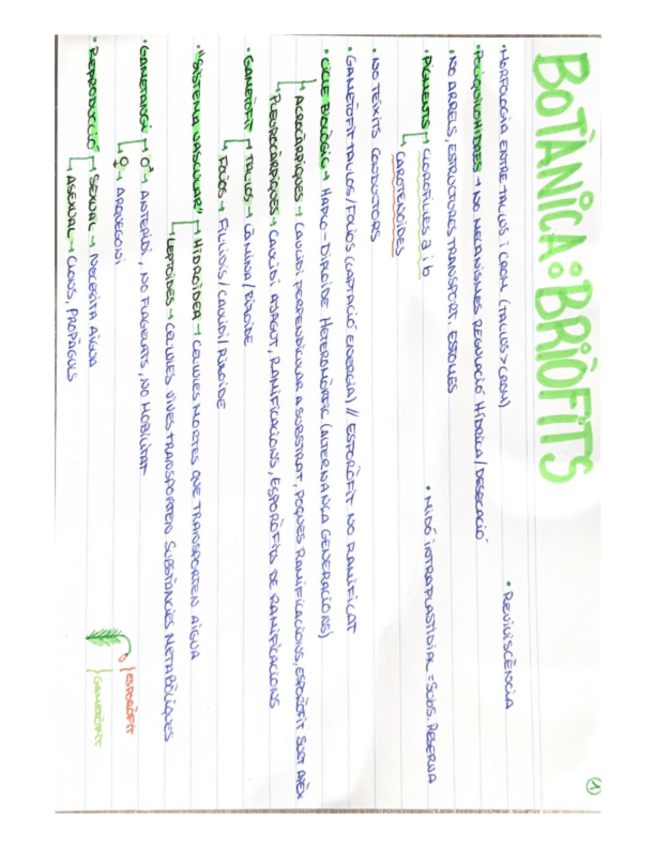 BOTÀNICA: BRIÒFITS
1
• MORFOLOGIA ENTRE TAL·LUS I CORM (TAL·LUS > CORM)
• REVIVISCÈNCIA
• POIQUILOHIDRES → NO MECANISMES REGULACIÓ HÍDRICA / DESECACIÓ
• NO ARRELS, ESTRUCTURES TRANSPORT, ESTOMES
• PIGMENTS → CLOROFIL·LES a i b
CAROTENOIDES
• MIDÓ INTRAPLASTIDIAL = SUBS. RESERVA
• NO TEIXITS CONDUCTORS
• GAMETÒFIT TAL·LÓS / FOLIÓS (CAPTACIÓ ENERGIA) // ESPORÒFIT NO RAMIFICAT
• CICLE BIOLÒGIC → HAPLO-DIPLOIDE HETEROMÒRFIC (ALTERNANÇA GENERACIONS)
→ ACROCÀRPIQUES → CAULIDI PERPENDICULAR A SUBSTRAT, POQUES RAMIFICACIONS, ESPORÒFIT SURT ÀPEX
PLEUROCÀRPIQUES → CAULIDI AJAGUT, RAMIFICACIONS, ESPORÒFITS DE RAMIFICACIONS
• GAMETÒFIT → TAL·LÓS → LÀMINA / RIZOIDE
FOLIÓS → FIL·LIDIS / CAULIDI / RIZOIDE
• "SISTEMA VASCULAR" → HIDROIDEA → CÈL·LULES MORTES QUE TRANSPORTEN AIGUA
LEPTOIDES → CÈL·LULES VIVES TRANSPORTEN SUBSTÀNCIES METABÒLIQUES
• GAMETANGI → ♂ → ANTERIDI, NO FLAGELATS, NO MOBILITAT
♀ → ARQUEGONI
• REPRODUCCIÓ → SEXUAL → NECESITA AIGUA
ASEXUAL → CLONS, PROPÀGULS
ESPORÒFIT
GAMETÒFIT